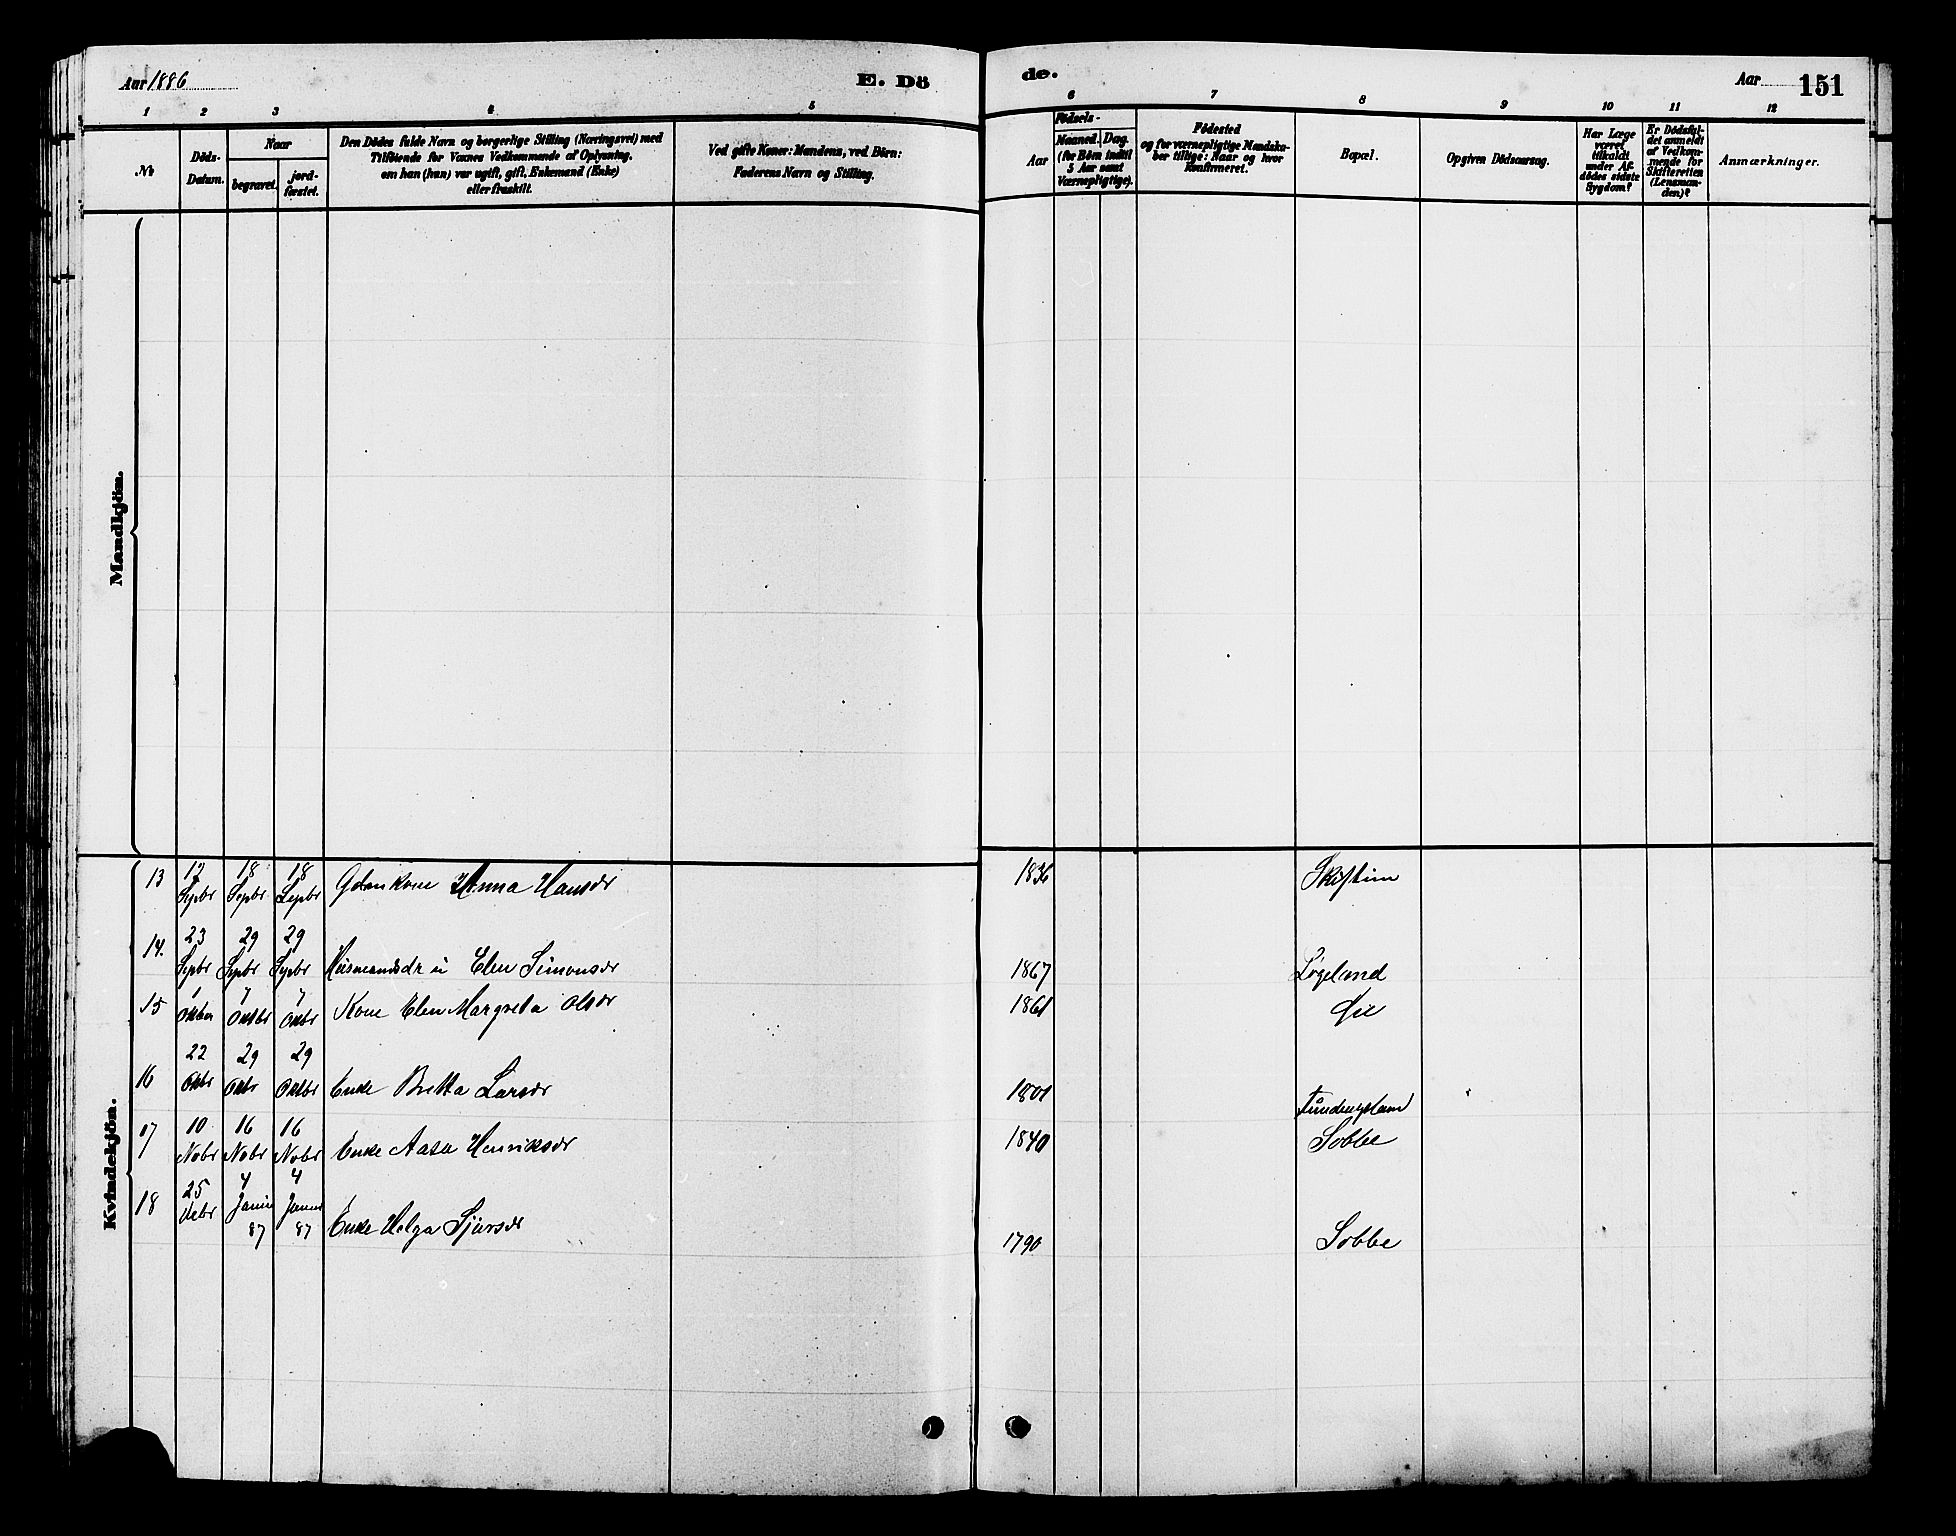 Aar 1886
E. Dö
de.
Aar 151
1 2 3 4 5 6 7 8 9 10 11 12
No
Döds-
Datum.
Naar
begravet.
jord-
fæstet.
Den Dödes fulde Navn og borgerlige Stilling (Næringsvei) med
Tilföiende for Voxnes Vedkommende af Oplysning,
om han (hun) var ugift, gift, Enkemand (Enke)
eller fraskilt.
Ved gifte Koner: Mandens, ved Börn:
Faderens Navn og Stilling.
Födsels-
Aar
Maaned. Dag.
(for Börn indtil
5 Aar samt
Værnepligtige).
Födested
og for værnepligtige Mandska-
ber tillige: Naar og hvor
Konfirmeret.
Bopæl.
Opgiven Dödsaarsag.
Har Læge
været
tilkaldt
under Af-
dödes sidste
Sygdom?
Er Dödsfal-
det anmeldt
af Vedkom-
mende for
Skifteretten
(Lensman-
den)?
Anmærkninger.
Mandkjön.
Kvindekjön.
13 12 Sepbr 18 Sepbr 18 Sepbr Anna Hansdr 1836
14. 23 Sepbr 29 Sepbr 29 Sepbr Husmandsdr Elen Simonsdr 1867
15 Oktbr 7 Oktbr 7 Oktbr Kone Elen Margreta Olsdr 1861
16 22 Oktbr 29 Oktbr 29 Oktbr Enke Britta Larsdr 1801
17 10 Nobr 16 Nobr 16 Nobr Enke Aasa Henriksdr 1840 Sobbe
18 25 Debr 4 Januar 87 4 Januar 87 Enke Helga Sjursdr 1790 Sobbe